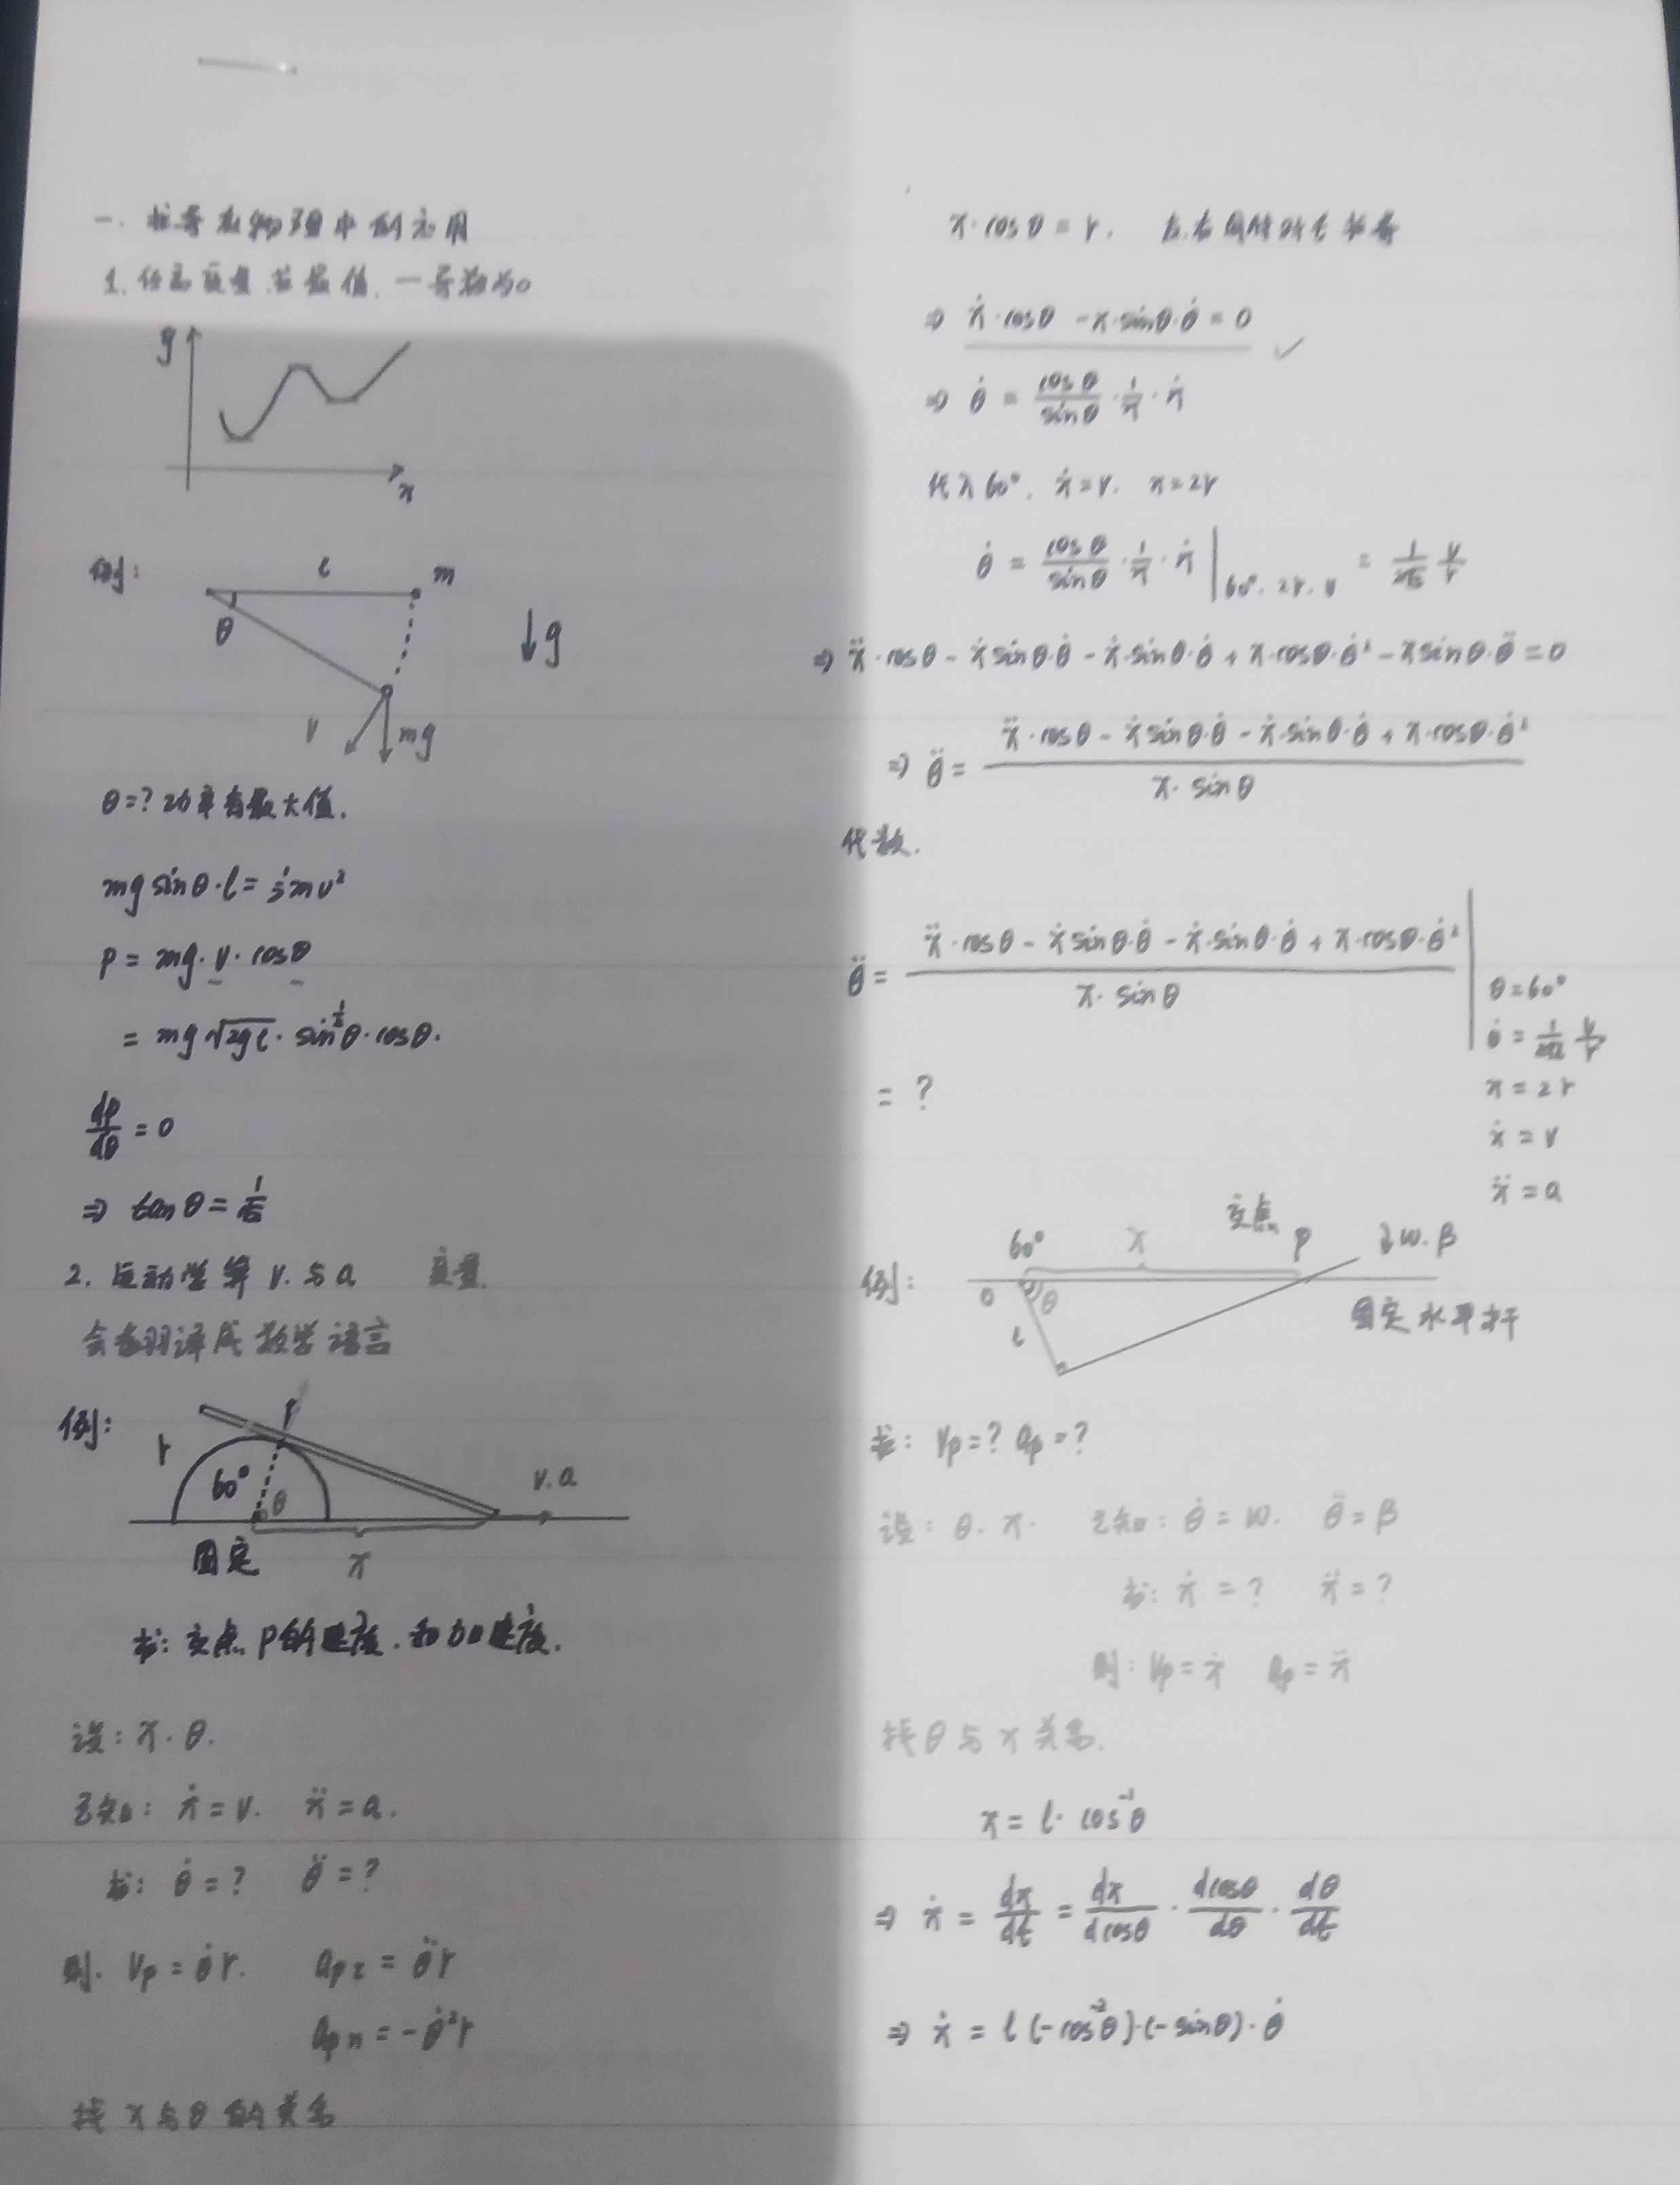 一. 求导在物理中的应用
1. 任意变量求最值. 一导数为0
y
x
例:
l
m
θ
g
v
mg
θ=? 功率有最大值.
mg sinθ·l = ½mv²
P = mg·v·cosθ
= mg√2gl · sin^½θ·cosθ.
dP/dθ = 0
⇒ tanθ = 1/√2
2. 运动学算 v.与a 变量.
会者翻译成数学语言
例:
r
P
60°
θ
v.a
固定
x
求: 交点P的速度.和加速度.
设: x.θ.
已知: ẋ = v. ẍ = a.
求: θ̇ = ? θ̈ = ?
则. Vp = θ̇r. apτ = θ̈r
apn = -θ̇²r
找 x与θ的关系
x·cosθ = r. 左.右同时对t求导
⇒ ẋ·cosθ - x·sinθ·θ̇ = 0 ✓
⇒ θ̇ = cosθ/sinθ · 1/x · ẋ
代入60°. ẋ=v. x=2r
θ̇ = cosθ/sinθ · 1/x · ẋ | 60°. 2r. v = 1/2√3 v/r
⇒ ẍ·cosθ - ẋsinθ·θ̇ - ẋ·sinθ·θ̇ + x·cosθ·θ̇² - xsinθ·θ̈ = 0
⇒ θ̈ = ẍ·cosθ - ẋsinθ·θ̇ - ẋ·sinθ·θ̇ + x·cosθ·θ̇² / x·sinθ
代数.
θ̈ = ẍ·cosθ - ẋsinθ·θ̇ - ẋ·sinθ·θ̇ + x·cosθ·θ̇² / x·sinθ |
θ=60°
θ̇ = v/r
x = 2r
ẋ = v
ẍ = a
= ?
例:
60°
x
交点
P
w.β
O
θ
l
固定水平杆
求: Vp=? ap=?
设: θ. x. 已知: θ̇ = w. θ̈ = β
求: ẋ = ? ẍ = ?
则: Vp = ẋ ap = ẍ
找θ与x关系.
x = l·cos⁻¹θ
⇒ ẋ = dx/dt = dx/dcosθ · dcosθ/dθ · dθ/dt
⇒ ẋ = l(-cos⁻²θ)·(-sinθ)·θ̇